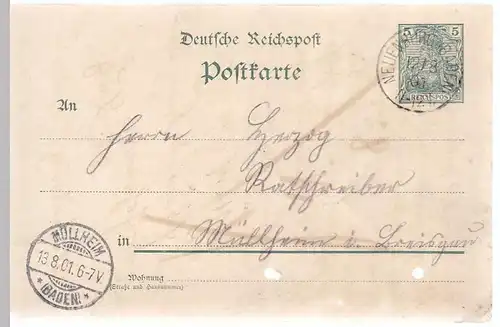 Deutsche Reichspost
Postkarte
5
REICHSPOST
An
Herrn Herzog
Ratschreiber
in Müllheim i. Breisgau
MÜLLHEIM
13.8.01.6-7V
* (BADEN) *
Wohnung
(Straße und Hausnummer)